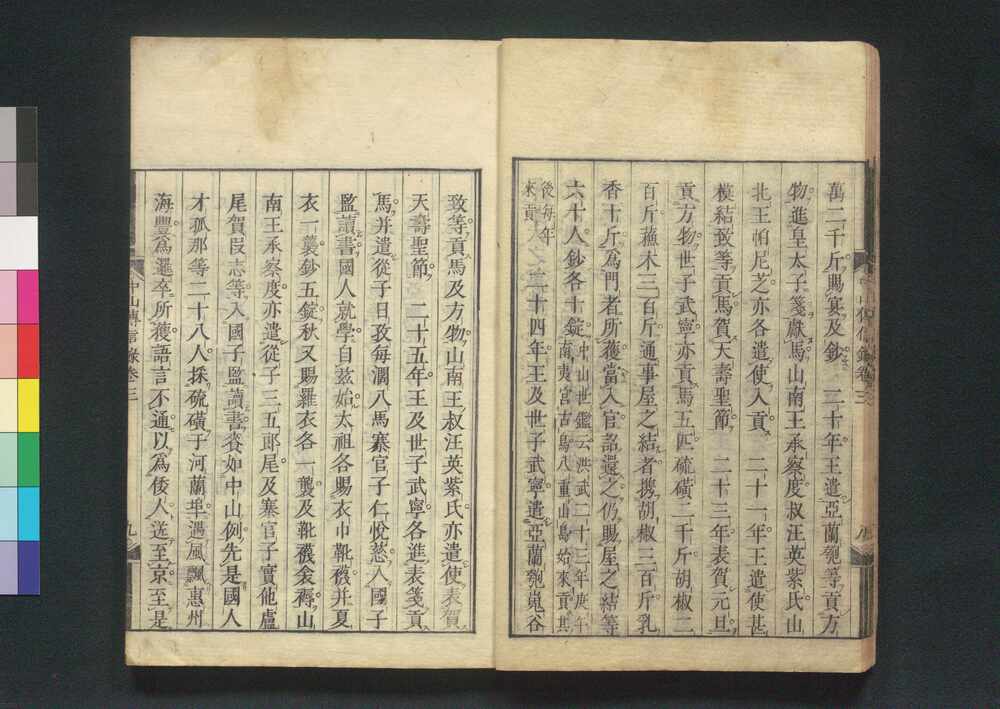 萬二千斤賜宴及鈔　二十年王遣亞蘭匏等貢方
物進皇太子箋獻馬山南王承察度叔汪英紫氏山
北王帕尼芝亦各遣使入貢　二十一年王遣使甚
模結致等貢馬賀天壽聖節　二十三年表賀元旦
貢方物世子武寧亦貢馬五匹硫磺二千斤胡椒二
百斤蘇木三百斤通事屋之結者攜胡椒三百斤乳
香十斤爲門者所獲當入官詔還之仍賜屋之結等
六十人鈔各十錠中山世鑑云洪武二十三年庚午
南夷宮古島八重山島始來貢其
後每年
來貢二十四年王及世子武寧遣亞蘭匏嵬谷
中山傳信錄卷三
八
致等貢馬及方物山南王叔汪英紫氏亦遣使表賀
天壽聖節　二十五年王及世子武寧各進表箋貢
馬并遣從子日孜每濶八馬寨官子仁悅慈入國子
監讀書國人就學自茲始太祖各賜衣巾靴襪并夏
衣一襲鈔五錠秋又賜羅衣各一襲及靴襪衾褥山
南王承察度亦遣從子三五郎尾及寨官子實他盧
尾賀叚志等入國子監讀書賚如中山例先是國人
才孤那等二十八人採硫磺于河蘭埠遇風飄惠州
海豐爲邏卒所獲語言不通以爲倭人送至京至是
中山傳信錄卷三
九